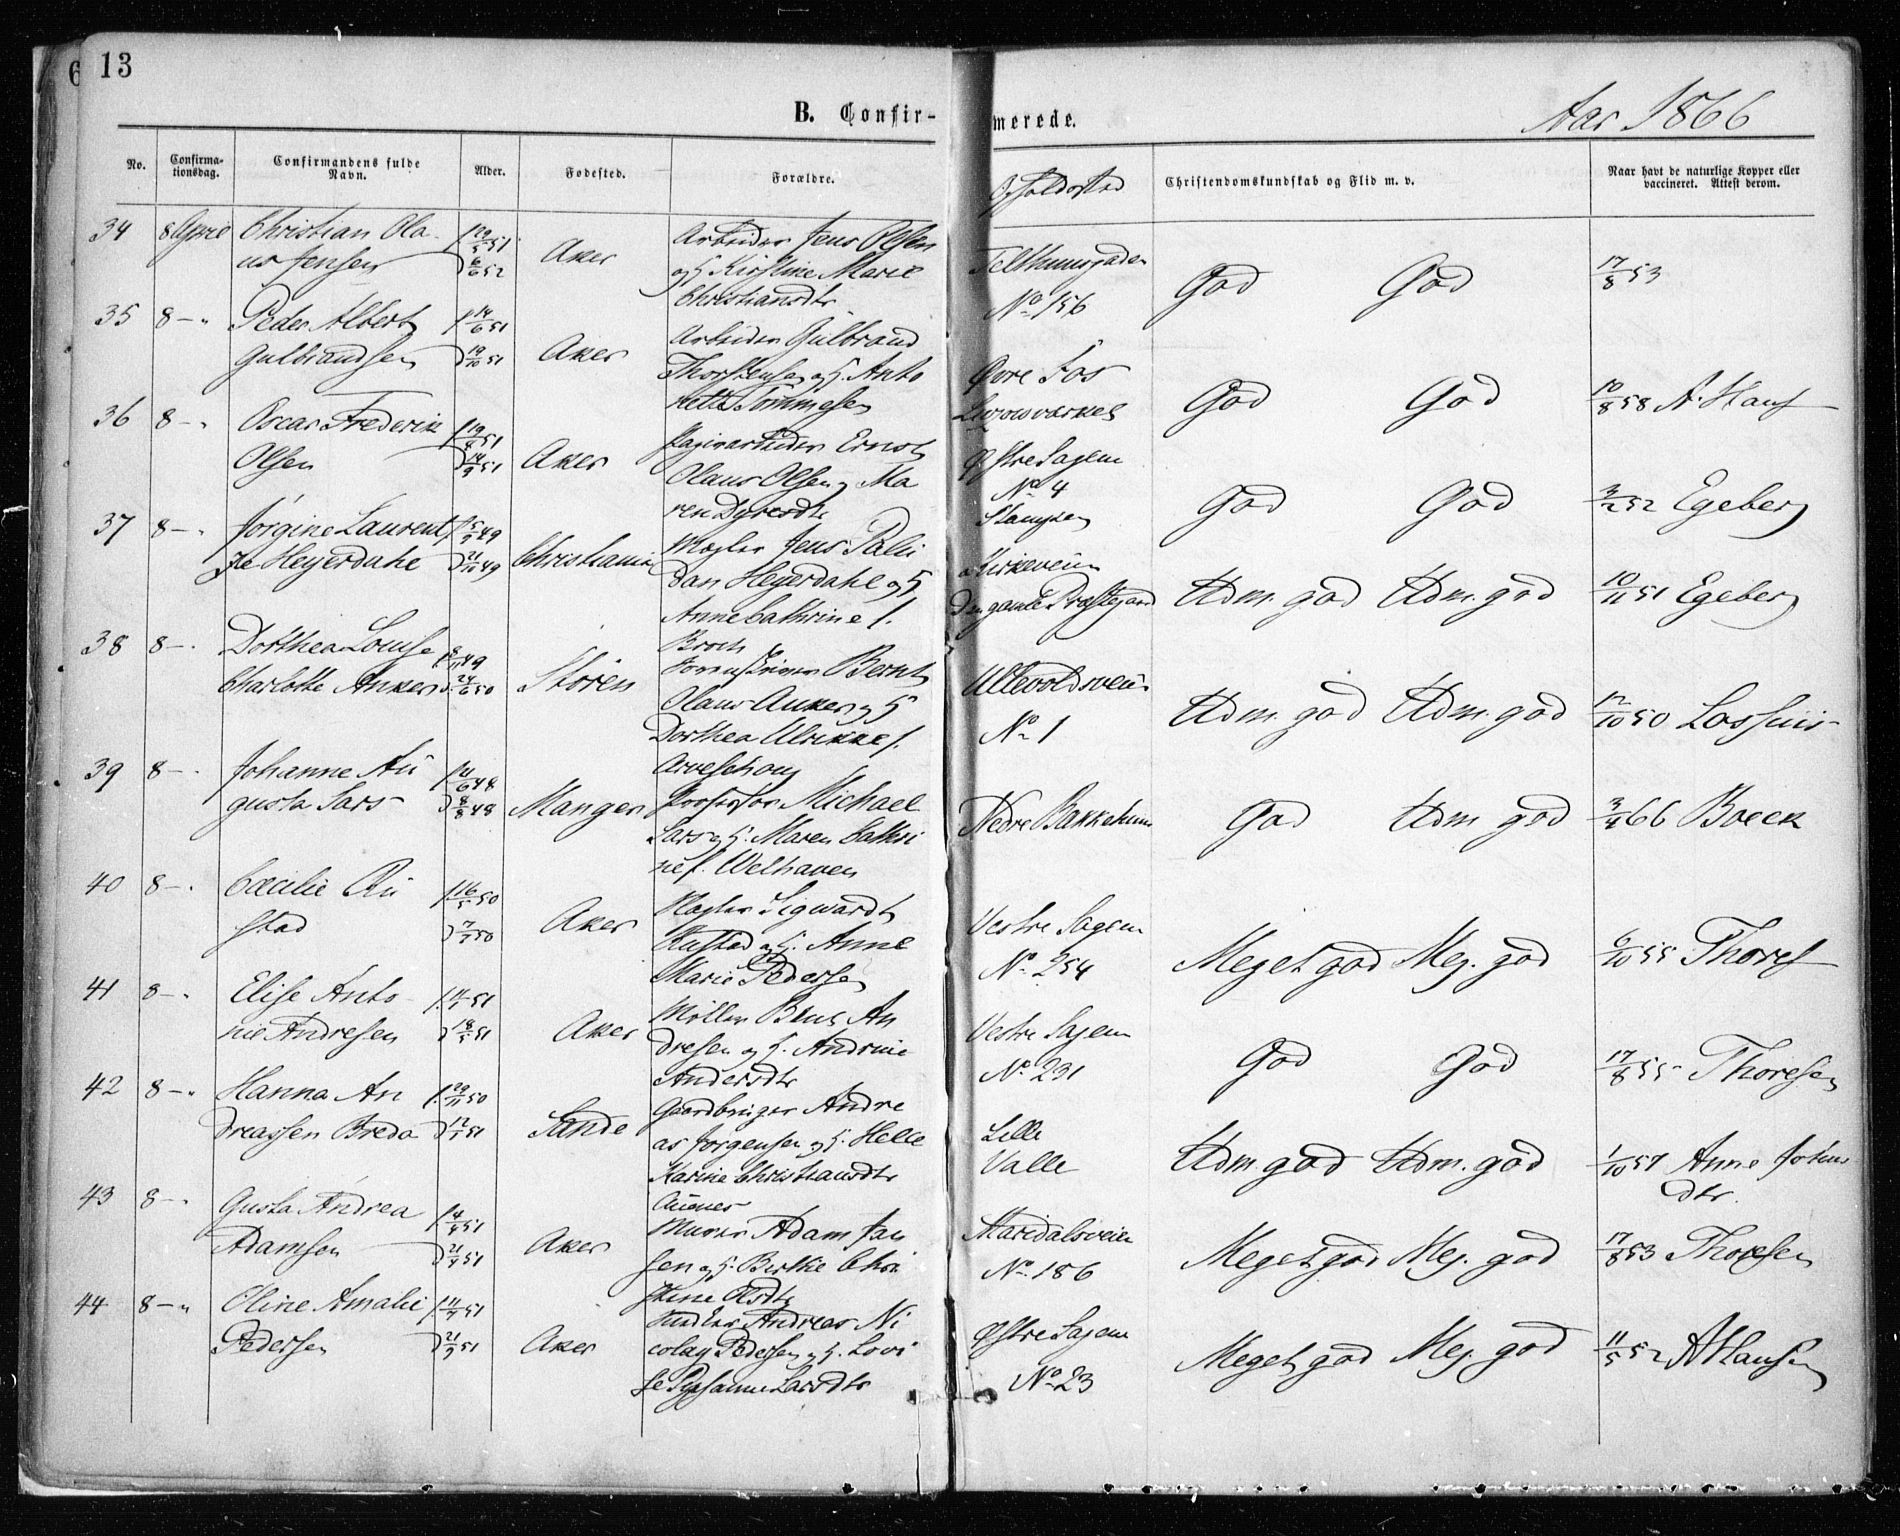 13
B. Confir-
merede.
Aar 1866
No.
Confirma-
tionsdag.
Confirmandens fulde
Navn.
Alder.
Fødested.
Forældre.
Opholdssted
Christendomskundskab og Flid m. v.
Naar havt de naturlige Kopper eller
vaccineret. Attest derom.
34 8 April Christian Ola
us Jensen
Aker
Arbeider Jens Olsen
og H. Kirstine Marie
Christiansdtr
Telthuusgaden
No 156
God God
17/8 53
35 8 — " Peder Albert
Gulbrandsen
f 14/6 51
D 19/10 51
Aker
Arbeider Gulbrand
Thorstensen og H. Anto
nette Tommesen
Øvre Fos
God God
10/8 58 A. Hans
36 8 — " Oscar Frederik
Olsen
Aker
Papirarbeider Ernst
Olaus Olsen og Ma
ren Dyresdtr
Østre Sagene
No 4
Stampen
God God
3/2 52 Egeberg
37 8 — " Jørgine Laurent
ze Heyerdahl
D 21/10 49
Christiania
Mægler Jens Palu
dan Heyerdahl og H
Anne Cathrine f.
Broch
Kirkeveien
Den gamle Præstegaard
Udm. god Udm. god
10/11 51 Egeberg
38 8 — " Dorthea Louise
Charlotte Anker
D. 24/6 50
Støren
Sorenskriver Bernt
Olaus Anker og H
Dorthea Ulrikke f.
Arveschoug
Ullevoldsveien
No 1
Udm. god Udm. god
12/10 50 Lossius
39 8 — " Johanne Au
gusta Sars
D 8/8 48
Manger
Professor Michael
Sars og H. Maren Cathri
ne f. Welhaven
Nedre Bakkehuus
God Udm god
3/4 66 Boeck
40 8 — " Cæcilie Ru
stad
f. 16/5 50
D 7/7 50
Aker
Mægler Sigwardt
Rustad og H. Anne
Marie Pedersen
Vestre Sagene
No 254
Meget god Meg. god
6/10 55 Thores
41 8 — " Elise Anto
nie Andresen
D 18/5 51
Aker
Møller Bent An
dresen og H. Andrine
Andersdtr
Vestre Sagene
No 231
God God
17/8 55 Thoresen
42 8 — " Hanna An
dreassen Breda
f. 29/11 50
D 12/1 51
Sande
Gaardbruger Andre
as Jørgensen og H. Helle
Karine Christiansdtr
Lille
Valle
Udm. god Udm. god
1/10 57 Anne Johns
dtr.
43 8 — " Gusta Andrea
Adamsen
Aker
Murer Adam Jan
sen og H. Berthe Chri
stine Olsdtr
Maridalsveien
No 186
Meget god Meg. god
17/8 53 Thoresen
44 8 — " Oline Amalie
Pedersen
Aker
Andreas Ni
colay Pedersen og H. Lovi
se Susanne Larsdtr
Østre Sagene
No 23
Meget god Meg. god
11/5 52 A Hansen